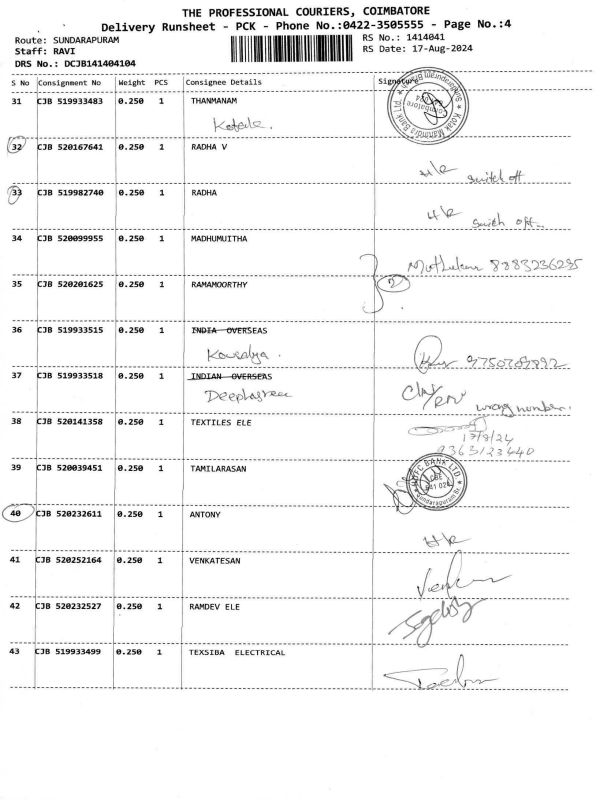 THE PROFESSIONAL COURIERS, COIMBATORE
Delivery Runsheet - PCK - Phone No.:0422-3505555 - Page No.:4
Route: SUNDARAPURAM RS No.: 1414041
Staff: RAVI RS Date: 17-Aug-2024
DRS No.: DCJB141404104
S No Consignment No Weight PCS Consignee Details Signature
31 CJB 519933483 0.250 1 THANMANAM
32 CJB 520167641 0.250 1 RADHA V
H/R switch off
33 CJB 519982740 0.250 1 RADHA
H/R switch off
34 CJB 520099955 0.250 1 MADHUMUITHA
8883236285
35 CJB 520201625 0.250 1 RAMAMOORTHY
2
36 CJB 519933515 0.250 1 INDIA OVERSEAS
Kousalya. 9750709892
37 CJB 519933518 0.250 1 INDIAN OVERSEAS
wrong number.
38 CJB 520141358 0.250 1 TEXTILES ELE
17/8/24
9363123440
39 CJB 520039451 0.250 1 TAMILARASAN
HDFC BANK LTD.
CBE
641 024
Sundarapuram Br
40 CJB 520232611 0.250 1 ANTONY
H/R
41 CJB 520252164 0.250 1 VENKATESAN
42 CJB 520232527 0.250 1 RAMDEV ELE
43 CJB 519933499 0.250 1 TEXSIBA ELECTRICAL